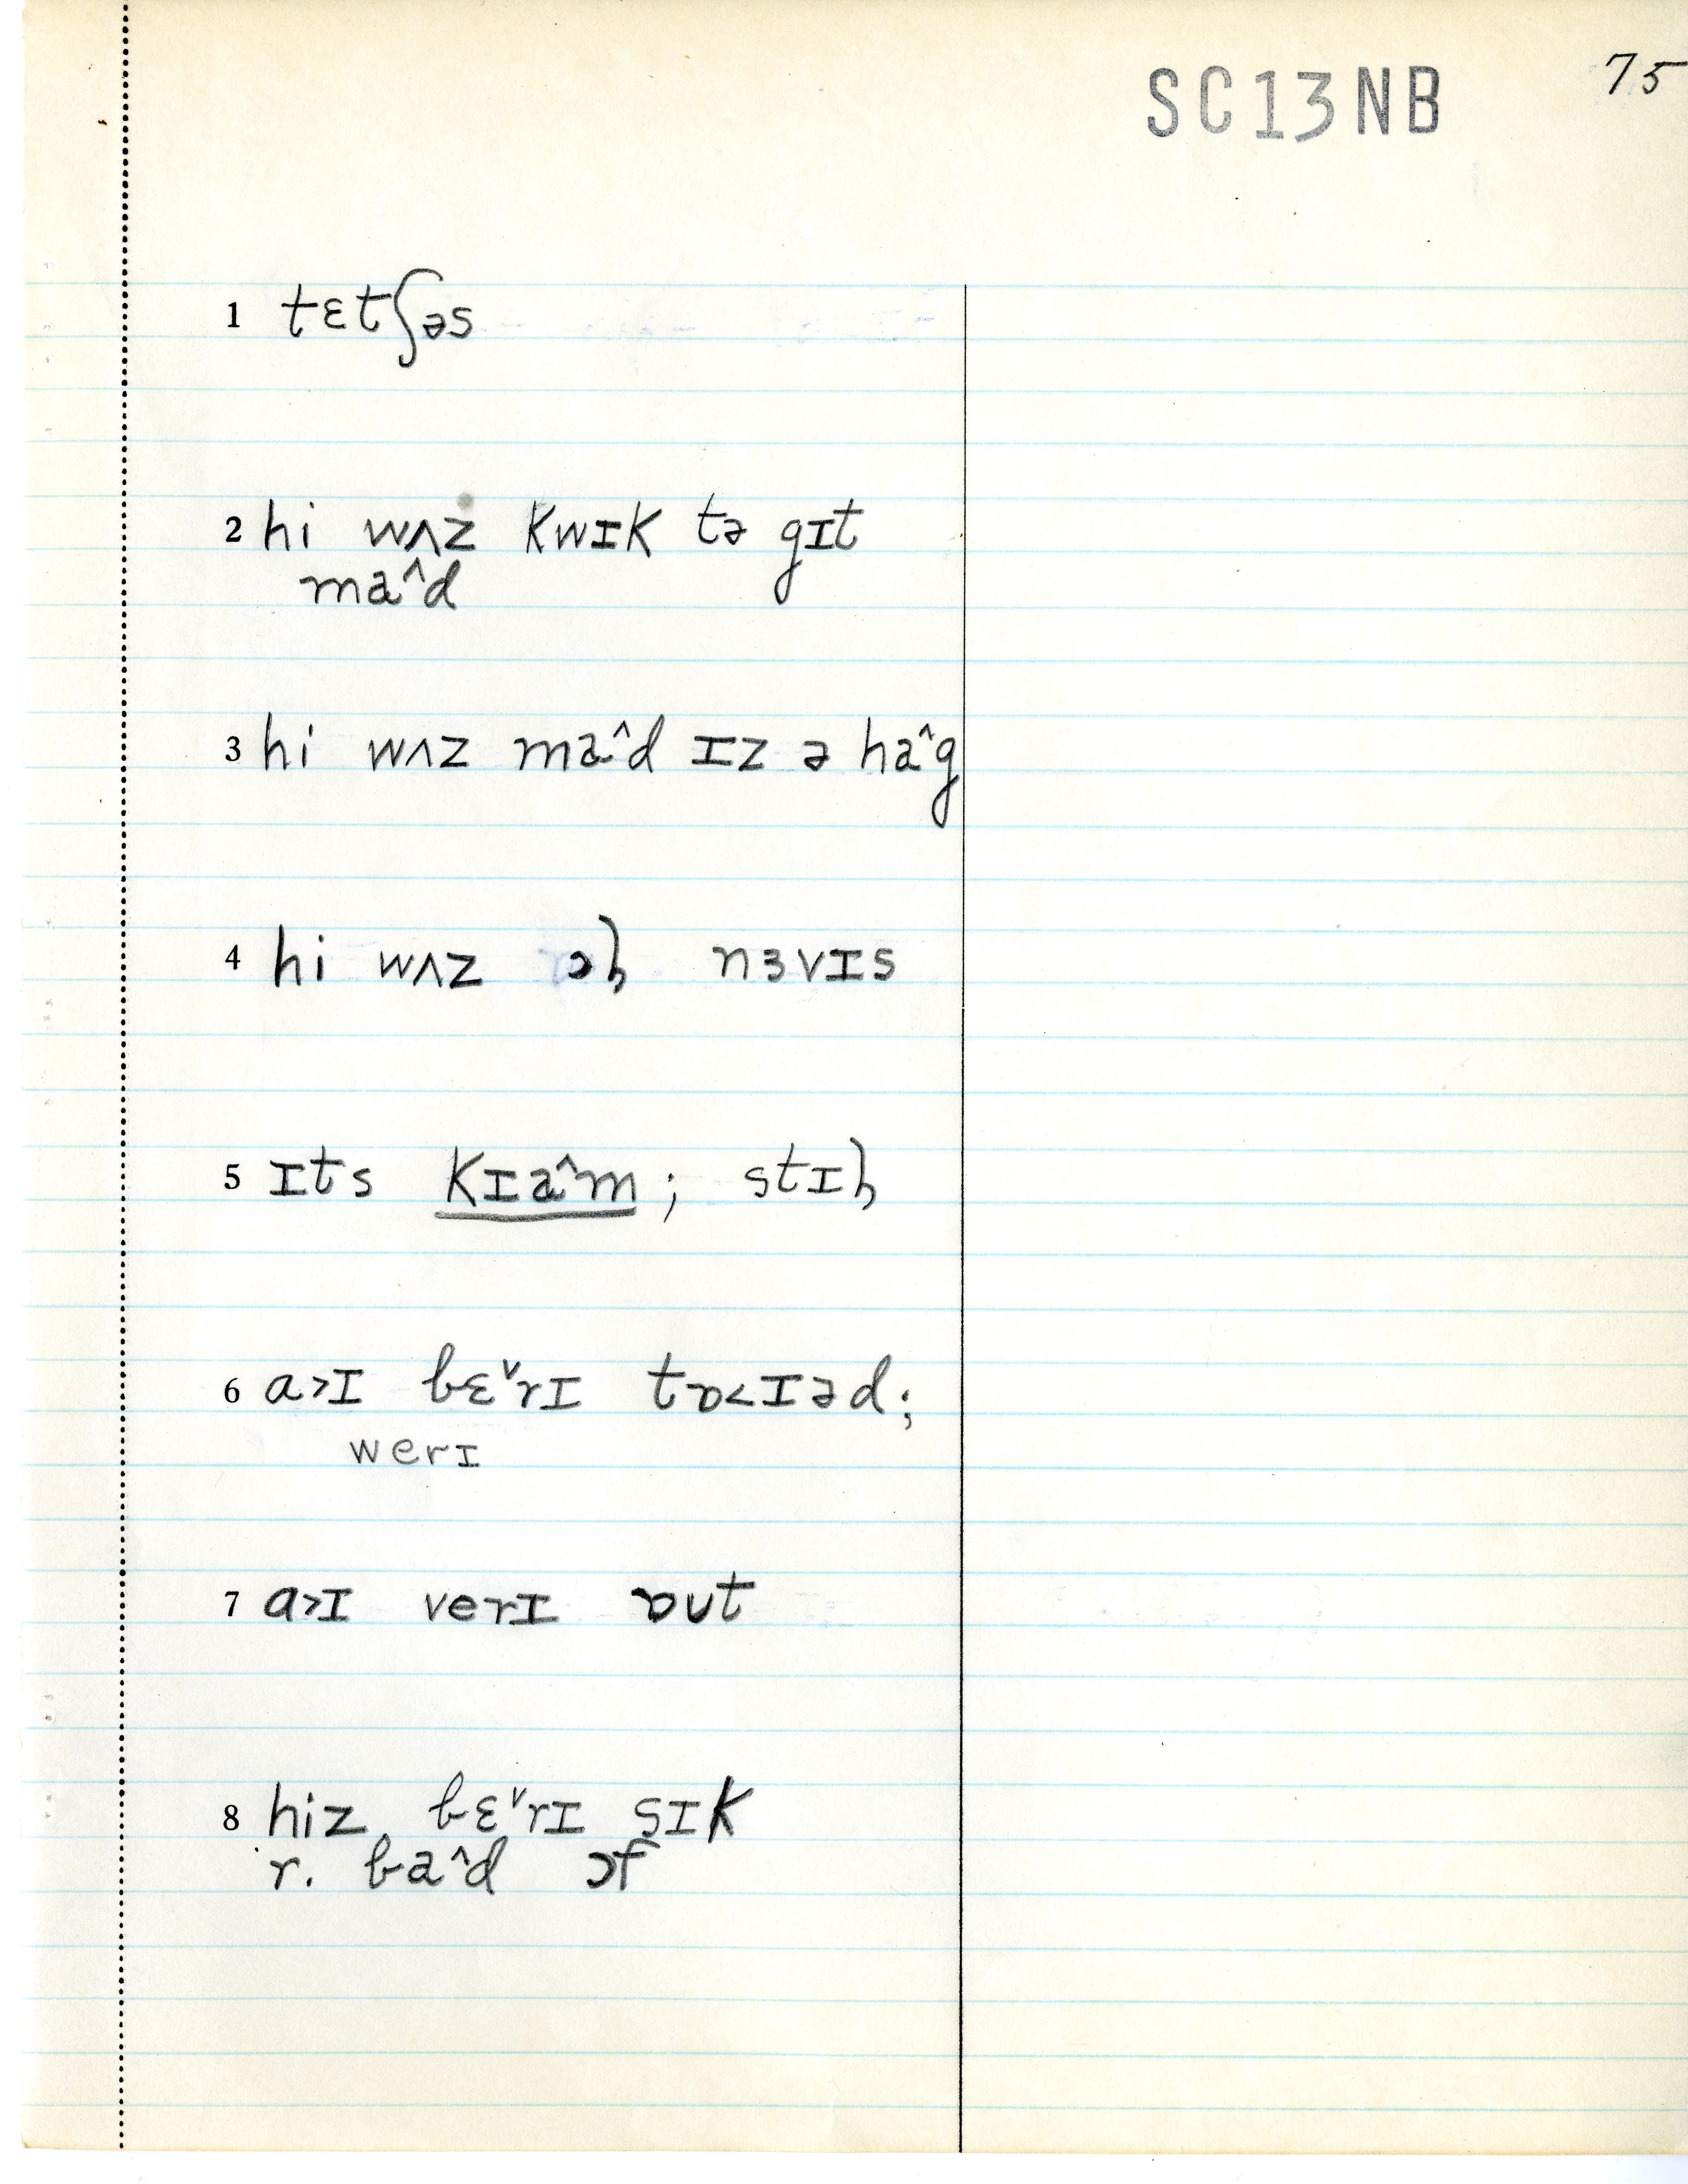 SC13NB 75
1 tɛtʃəs
2 hi wʌz kwɪk tə gɪt
ma^d
3 hi wʌz ma^d ɪz ə ha^g
4 hi wʌz ɔɫ nɜvɪs
5 ɪts kɪa^m; stɪɫ
6 a>ɪ bɛˇrɪ tɒ<ɪəd;
werɪ
7 a>ɪ verɪ ɒut
8 hiz bɛˇrɪ sɪk
r. ba^d ɔf